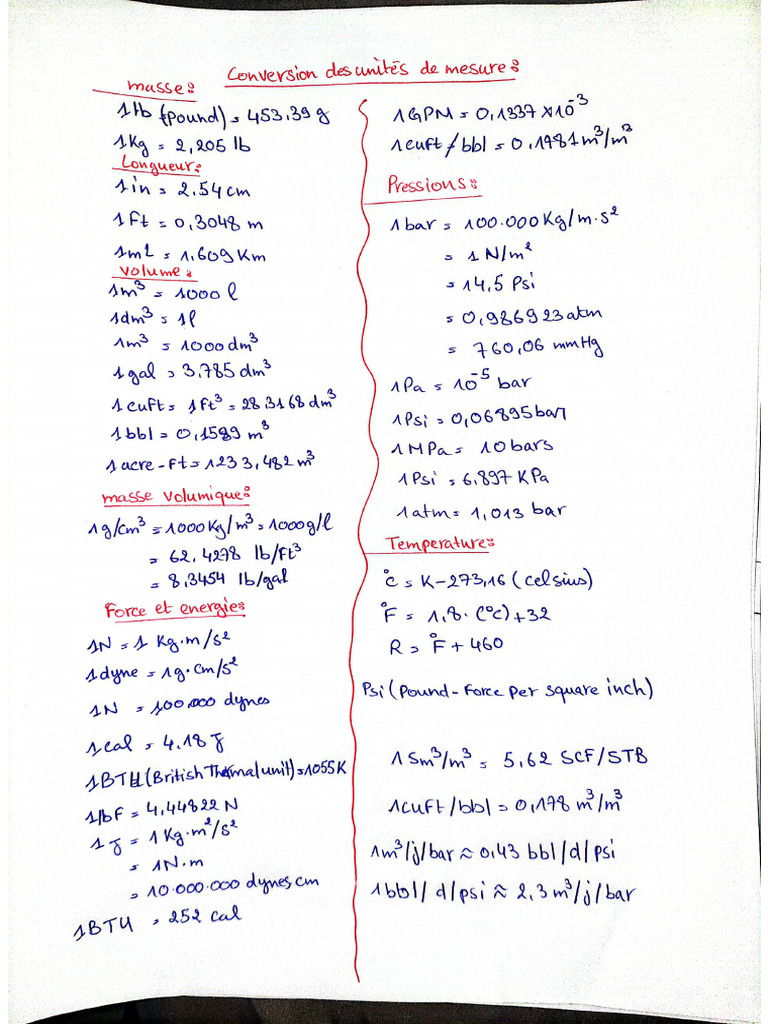 Conversion des unités de mesure:
masse:
1lb (pound) = 453,39 g
1Kg = 2,205 lb
Longueur:
1in = 2.54 cm
1ft = 0,3048 m
1ml = 1,609 Km
Volume:
1m³ = 1000 l
1dm³ = 1l
1m³ = 1000 dm³
1gal = 3,785 dm³
1cuft = 1ft³ = 28,3168 dm³
1bbl = 0,1589 m³
1acre-ft = 1233,482 m³
masse volumique:
1g/cm³ = 1000Kg/m³ = 1000g/l
= 62,4278 lb/ft³
= 8,3454 lb/gal
Force et energie:
1N = 1 Kg.m/s²
1dyne = 1g.cm/s²
1N = 100.000 dynes
1cal = 4,18 J
1BTU (British Thermal unit) = 1055K
1lbF = 4,44822 N
1J = 1Kg.m²/s²
= 1N.m
= 10.000.000 dynes,cm
1BTU = 252 cal
1GPM = 0,1337 x10⁻³
1cuft/bbl = 0,1781m³/m³
Pressions:
1bar = 100.000Kg/m.s²
= 1 N/m²
= 14,5 Psi
= 0,986923 atm
= 760,06 mmHg
1Pa = 10⁻⁵ bar
1Psi = 0,06895bar
1MPa = 10bars
1Psi = 6,897 KPa
1atm = 1,013 bar
Temperature:
°C = K-273,16 (celsius)
°F = 1,8.(°C)+32
R = °F + 460
Psi (Pound-Force per square inch)
1Sm³/m³ = 5,62 SCF/STB
1cuft/bbl = 0,178 m³/m³
1m³/j/bar ≈ 0,43 bbl/d/psi
1bbl/d/psi ≈ 2,3m³/j/bar